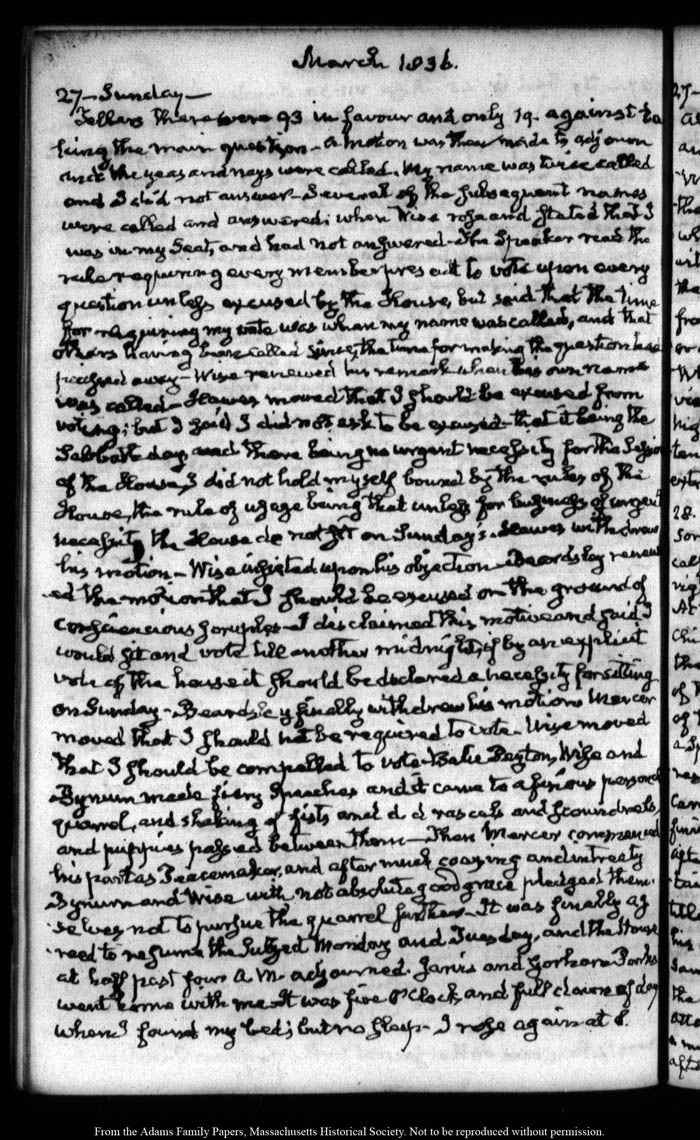 March 1836.
27 — Sunday —
Tellers there were 93 in favour and only 19. against ta
king the main question — A motion was then made to adjourn
and the yeas and nays were called. My name was twice called
and I did not answer — Several of the subsequent names
were called and answered; when Wise rose and stated that I
was in my Seat, and had not answered — The Speaker read the
rule requiring every member present to vote upon every
question unless excused by the House, but said that the time
for requiring my vote was when my name was called, and that
others having been called since, the time for making the question had
passed away — Wise renewed his remark when his own name
was called — Hawes moved that I should be excused from
voting; but I said I did not ask to be excused — that it being the
Sabbath day and there being no urgent necessity for the Session
of the House, I did not hold myself bound by the rules of the
House, the rule of usage being that unless for business of urgent
necessity, the House do not sit on Sundays. Hawes withdrew
his motion — Wise insisted upon his objection — Beardsley renew
ed the motion that I should be excused on the ground of
consciencious scruples — I disclaimed this motive and said I
would sit and vote till another midnight, if by an explicit
vote of the house it should be declared a necessity for sitting
on Sunday — Beardsley finally withdrew his motion. Mercer
moved that I should not be required to vote — Wise moved
that I should be compelled to vote — Balie Peyton, Wise and
Bynum made fiery Speeches and it came to a furious personal
quarrel, and shaking of fists and d d rascals and scoundrels,
and puppies passed between them — Then Mercer commenced
his part as Peacemaker, and after much coaxing and intreaty
Bynum and Wise with not absolute good grace pledged them
selves not to pursue the quarrel further — It was finally ag
reed to resume the Subject Monday and Tuesday, and the House
at half past four A.M. adjourned. Jarvis and Gorham Parks
went home with me. It was five O'Clock, and full dawn of day
when I found my bed; but no sleep — I rose again at 8.
27 —
28.
From the Adams Family Papers, Massachusetts Historical Society. Not to be reproduced without permission.